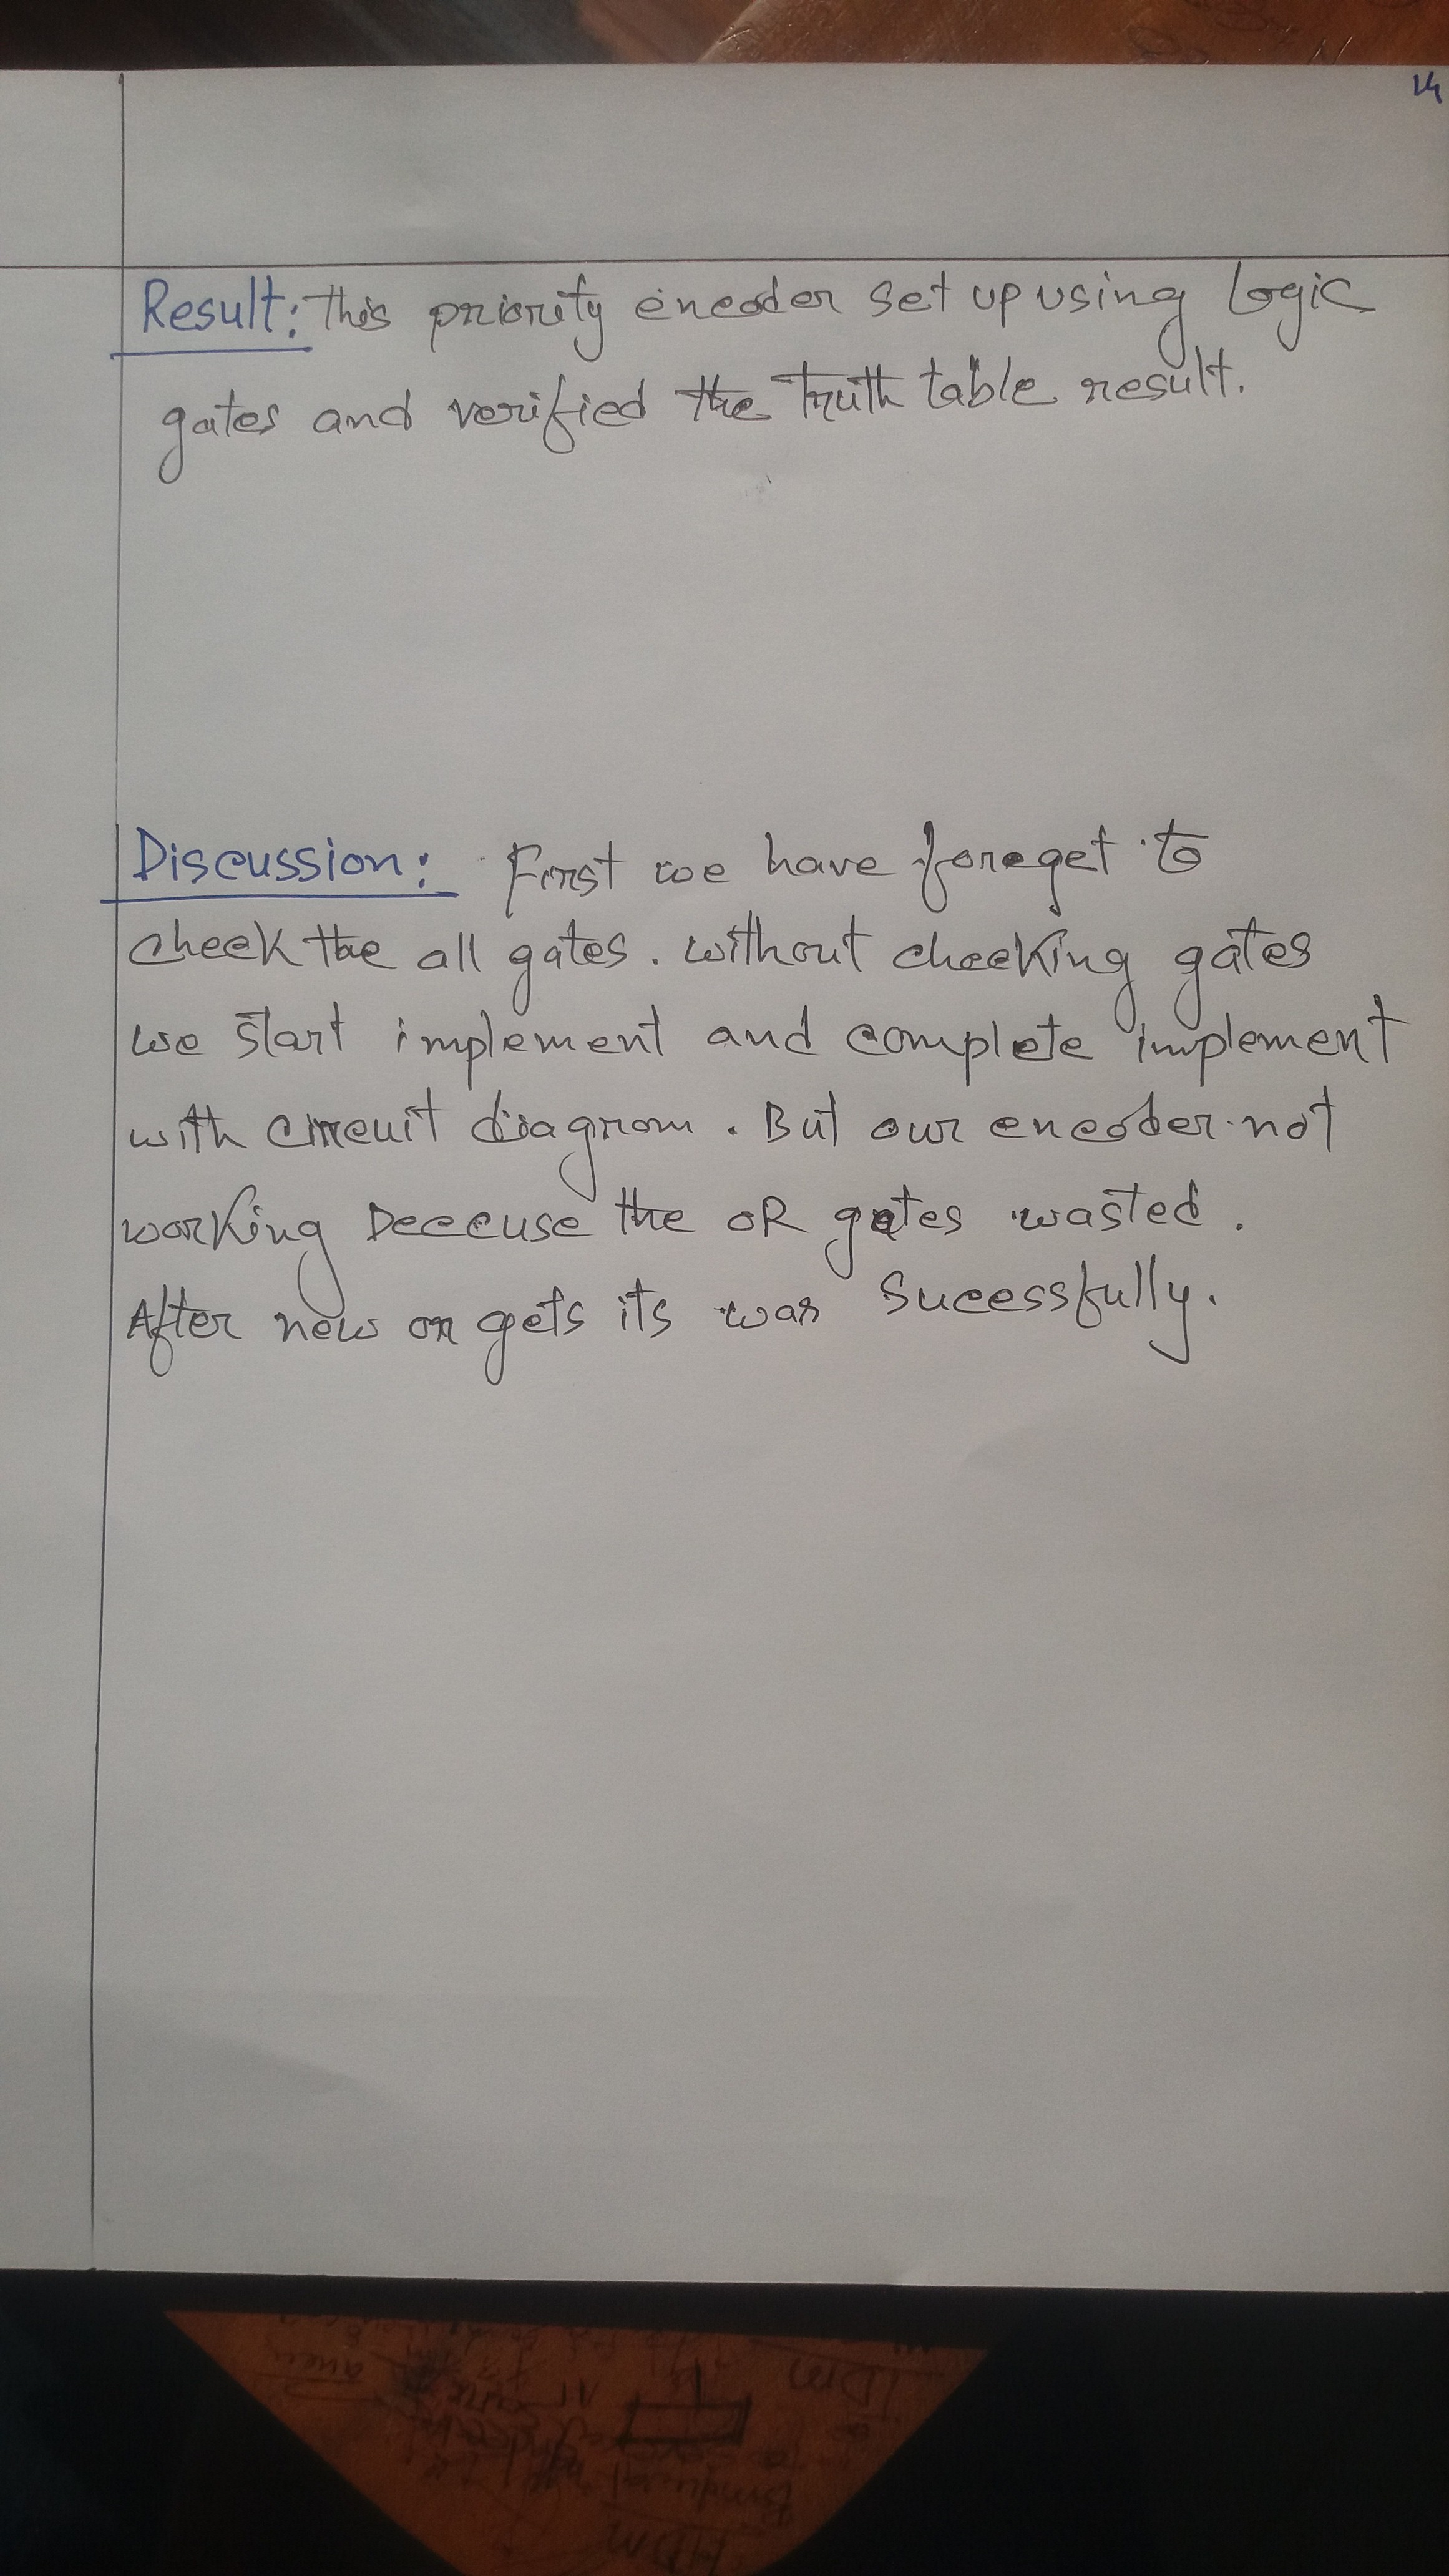 14
Result: This priority encoder set up using Logic
gates and verified the Truth table result.
Discussion: First we have foreget to
cheek the all gates. without cheeking gates
we start implement and complete implement
with circuit diagram. But our encoder not
working Deceuse the OR gates wasted.
After new or gets its was Sucessfully.